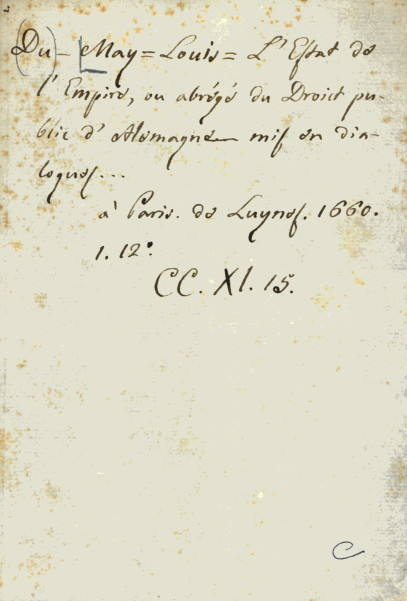 (Du) - May = Louis = L'Estat de
l'Empire, ou abrégé du Droict pu-
blic d'Alemagne mis en dia-
logues...
à Paris. de Luynes. 1660.
1. 12°.
CC. XI. 15.
C